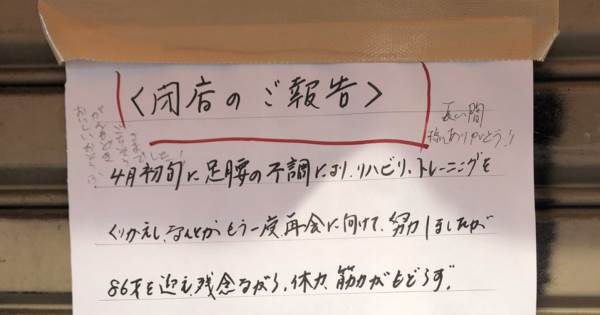 〈閉店のご報告〉
4月初旬に足腰の不調により、リハビリ、トレーニングを
くりかえし、なんとかもう一度、再会に向けて、努力しましたが
86才を迎え、残念ながら、体力、筋力がもどらず。
長い間
ありがとう!!